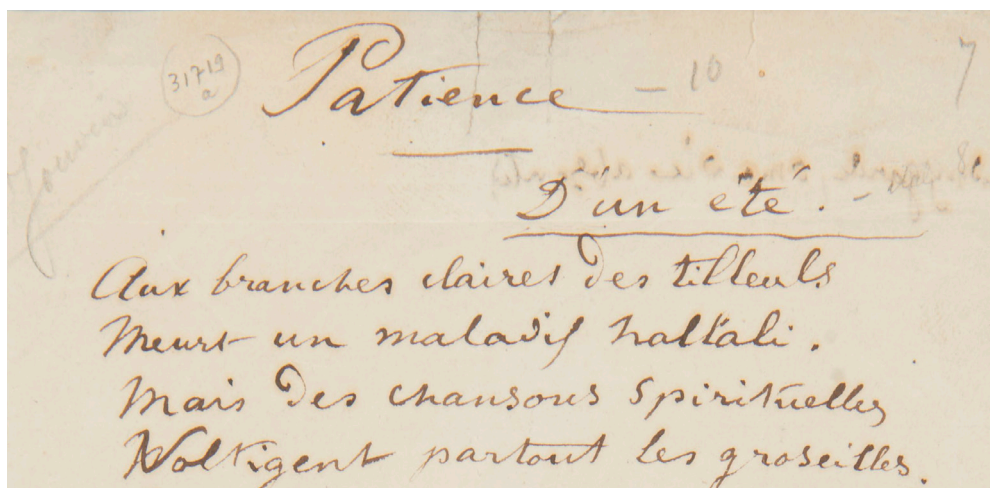 31719
a
Patience — 10
7
D'un été. -
Aux branches claires des tilleuls
Meurt un maladif hallali.
Mais des chansons spirituelles
Voltigent partout les groseilles.